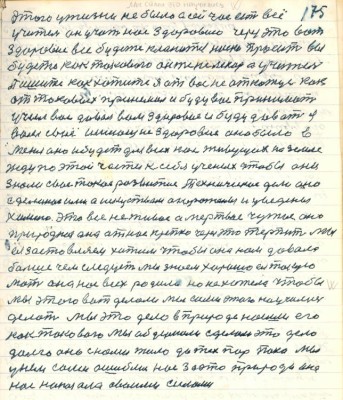 175
этого у жизни не было а сейчас есть всё
учителя он учат нас здоровию через это вот
здоровие все будете кланятся и низко просить вы
будете как такового
пишите как хотите Я от вас не откажусь как
от таковых принимал и буду вас принимать
учил вас давал вам здоровие и буду давать Я
вам своё здоровие оно было в
меня оно и будет для всех нас живущих на земле
жду по этой части к себе ученых чтобы они
знали свое такое развитие Техническое дело оно
сделано
химию. Это все не живое а мертвое чужое оно
природна она от нас крепко через это терпит мы
ее заставляем хотим чтобы она нам давала
больше чем следует мы знаем хорошо ее такую
мать она нас всех родила но не хотела чтобы
мы этого вот делали мы сами этого научились
делать мы это дело в природе нашли его
как такового мы обдумали сделали это дело
долго оно с нами жило до тех пор пока мы
у нем сами ошиблись нас за это природа она
нас наказала своими силами